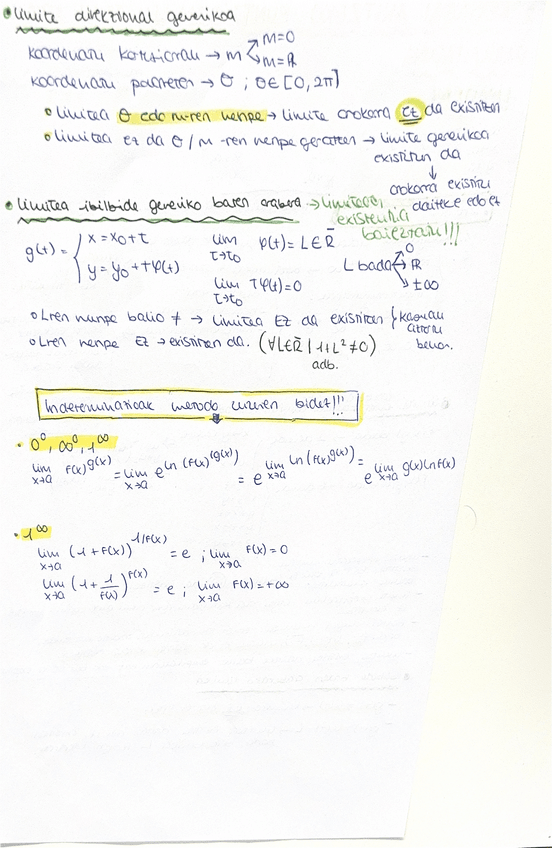 • Limite direkzional generikoa
koordenatu kartesiarrak → m m=0
m=ℝ
koordenatu polarretan → θ ; θ∈[0,2π]
• Limitea θ edo m-ren menpe → limite orokorra EZ da existitzen
• Limitea ez da θ/m-ren menpe geratzen → limite generikoa
existitzen da
↓
orokorra existitu
daiteke edo ez
• Limitea ibilbide generiko baten arabera → limitearen
existentzia
baieztatu!!!
g(t) = { x = x₀+t
y = y₀+tφ(t)
lim t→t₀ φ(t) = L∈ℝ̄
lim t→t₀ tφ(t) = 0
L bada 0
ℝ
±∞
• L-ren menpe balio ≠ → Limitea EZ da existitzen } kasuau
• L-ren menpe EZ → existitzen da. (∀L∈ℝ̄ | 1+L²≠0)
adb.
Indeterminazioak metodo bidez!!!
• 0⁰, ∞⁰, 1^∞
lim x→a f(x)^g(x) = lim x→a e^ln(f(x)^g(x)) = e^lim x→a ln(f(x)^g(x)) = e^lim x→a g(x)ln f(x)
• 1^∞
lim x→a (1+f(x))^1/f(x) = e ; lim x→a f(x)=0
lim x→a (1+1/f(x))^f(x) = e ; lim x→a f(x)=+∞